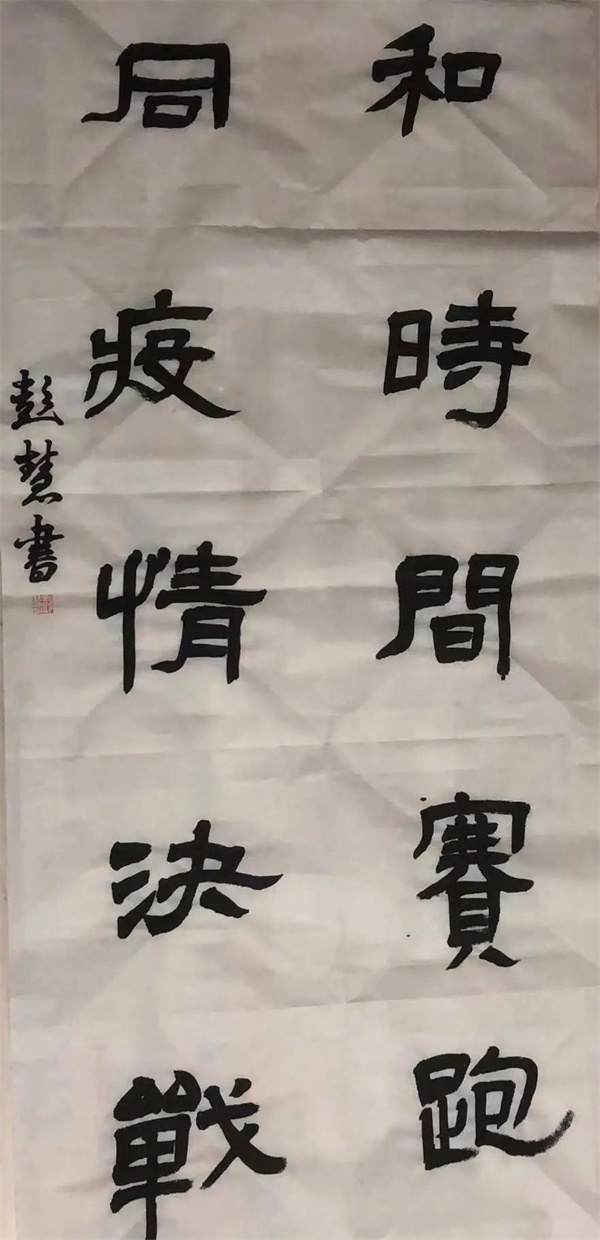 和時間賽跑
同疫情決戰
彭慧書